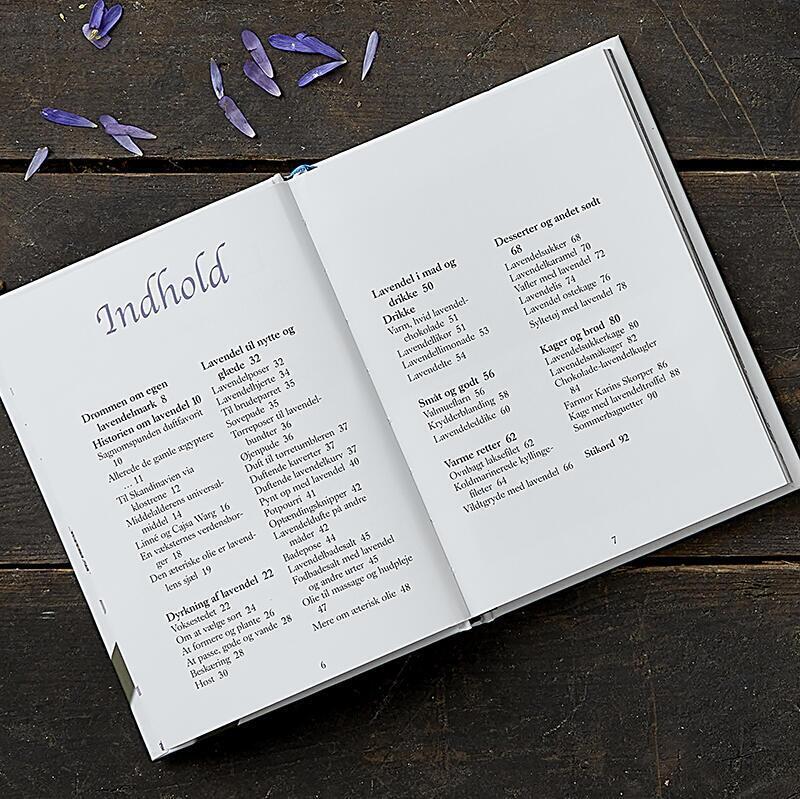 Indhold
Drømmen om egen
lavendelmark 8
Historien om lavendel 10
Sagnomspunden duftfavorit
10
Allerede de gamle ægyptere
... 11
Til Skandinavien via
klostrene 12
Middelalderens universal-
middel 14
Linné og Cajsa Warg 16
En væksternes verdensbor-
ger 18
Den æteriske olie er lavend-
lens sjæl 19
Dyrkning af lavendel 22
Voksestedet 22
Om at vælge sort 24
At formere og plante 26
At passe, gøde og vande 28
Beskæring 28
Høst 30
Lavendel til nytte og
glæde 32
Lavendelposer 32
Lavendelhjerte 34
Til brudeparret 35
Sovepude 35
Tørreposer til lavendel-
bundter 36
Øjenpude 36
Duft til tørretumbleren 37
Duftende kuverter 37
Duftende lavendelkurv 37
Pynt op med lavendel 40
Potpourri 41
Optændingsknipper 42
Lavendeldufte på andre
måder 42
Badepose 44
Lavendelbadesalt 45
Fodbadesalt med lavendel
og andre urter 45
Olie til massage og hudpleje
47
Mere om æterisk olie 48
6
Lavendel i mad og
drikke 50
Drikke
Varm, hvid lavendel-
chokolade 51
Lavendellikør 51
Lavendellimonade 53
Lavendelte 54
Småt og godt 56
Valmueflarn 56
Krydderblanding 58
Lavendeleddike 60
Varme retter 62
Ovnbagt laksefilet 62
Koldmarinerede kyllinge-
fileter 64
Vildtgryde med lavendel 66
Desserter og andet sødt
68
Lavendelsukker 68
Lavendelkaramel 70
Vafler med lavendel 72
Lavendelis 74
Lavendel ostekage 76
Syltetøj med lavendel 78
Kager og brød 80
Lavendelsukkerkage 80
Lavendelsmåkager 82
Chokolade-lavendelkugler
84
Farmor Karins Skorper 86
Kage med lavendeltrøffel 88
Sommerbaguetter 90
Stikord 92
7